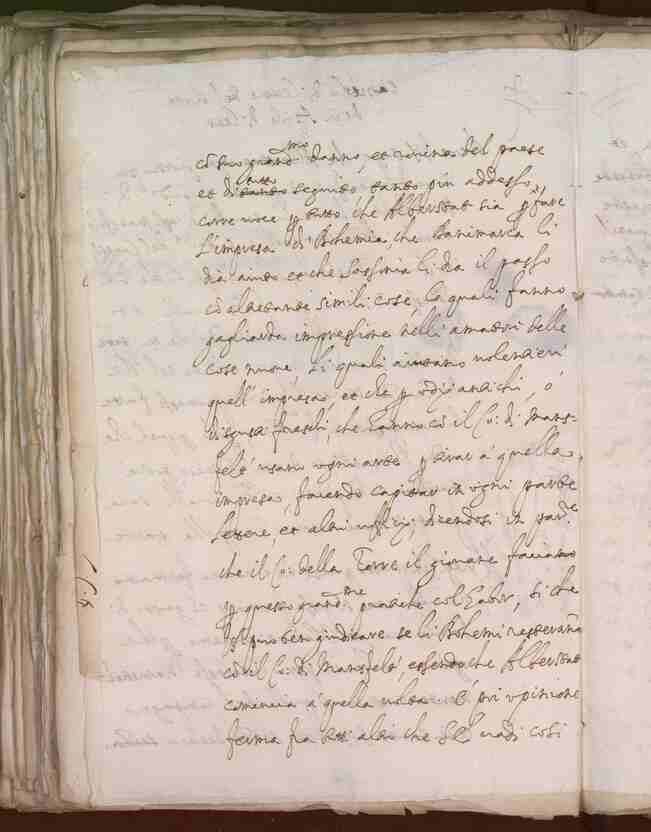 mo
cõ suo grand danno, et rovina del paese
tutto
et di tanto seguito tanto piu adesso,
corre voce p tutto, che Alberstat sia p fare
l'impresa di Bohemia, che Danimarca li
dia aiuto et che Sassonia li dia il passo
cõ altretante simili cose, le quali fanno
gagliarda impressione nelli amatori delle
cose nuove, li quali aiutano volentieri
quell' impresa, et che p odij antichi, ò
disgusti freschi, che hanno cõ il Co: di Mans-
felt usano ogni arte p tirar à quella
impresa, facendo capitar in ogni parte
lettere, et altri uffizij, dicendosi in par.re
che il Co: della Torre il giovane faciano
me
p questo grand pratiche col Gabor, si che
si puo ben giudicare se li Bohemi resteranno
cõ il Co: di Mansfelt, essendo che Alberstat
comincia à quella volta. È poi opinione
ferma fra tutti altri che vadi cosi